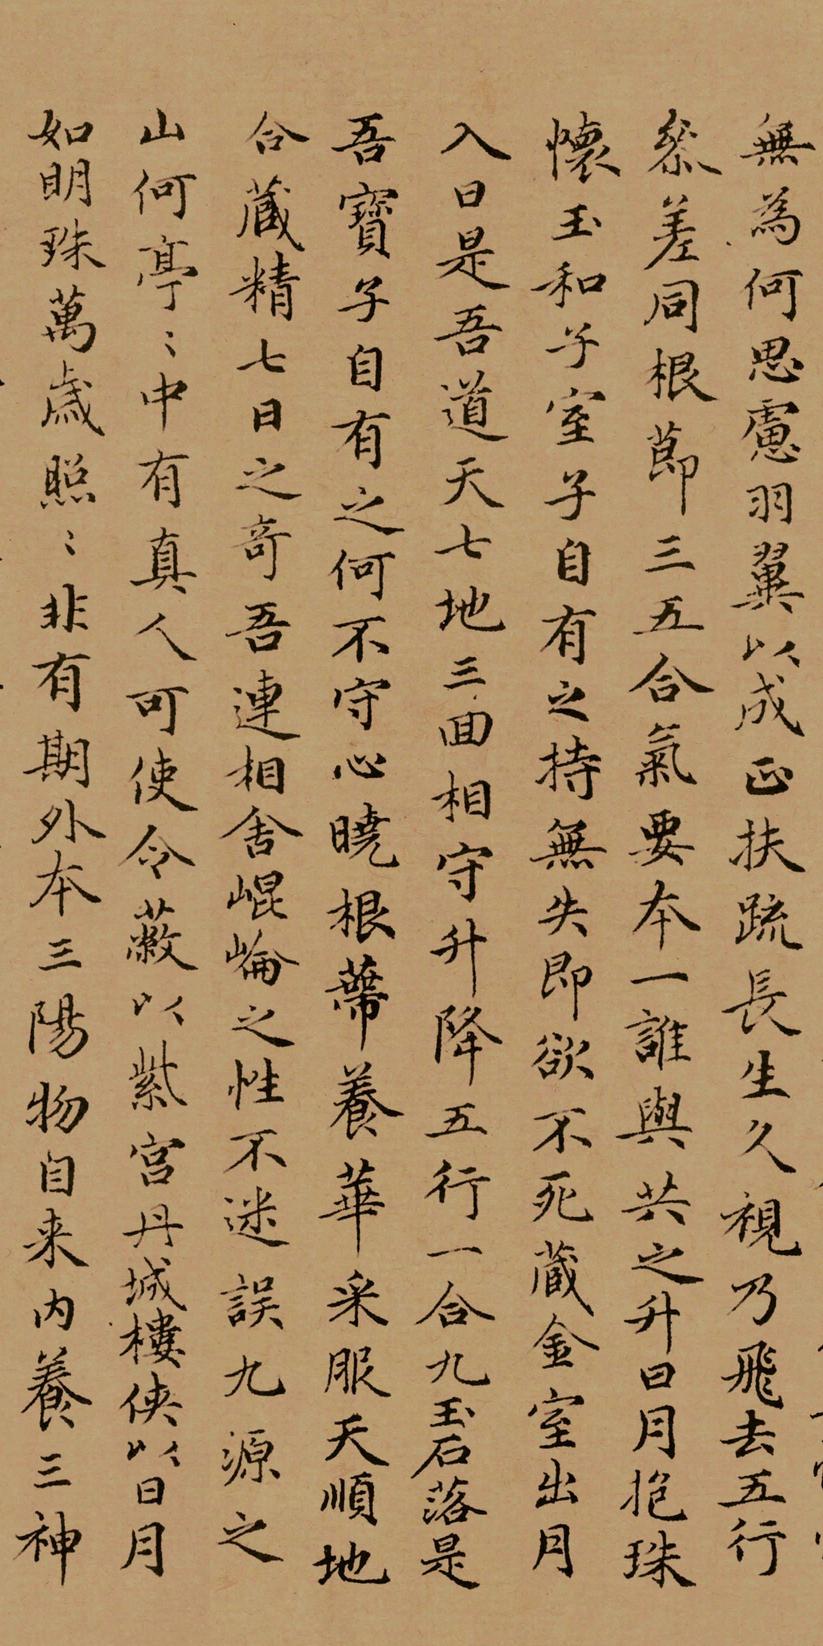 無為何思慮羽翼以成正扶疏長生久視乃飛去五行
叅差同根莭三五合氣要本一誰與共之升日月抱珠
懷玉和子室子自有之持無失即欲不死藏金室出月
入日是吾道天七地三回相守升降五行一合九玉石落是
吾寶子自有之何不守心曉根蔕養華采服天順地
合藏精七日之奇吾連相舍崐崘之性不迷誤九源之
山何亭〻中有真人可使令蔽以紫宫丹城樓俠以日月
如明珠萬歲照〻非有期外本三陽物自来内養三神